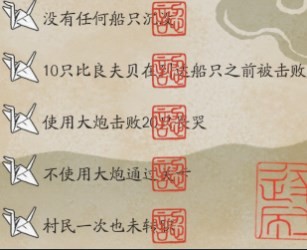 没有任何船只沉没
10只比良夫贝在到达船只之前被击败
使用大炮击败20只长哭
不使用大炮通过关卡
村民一次也未转